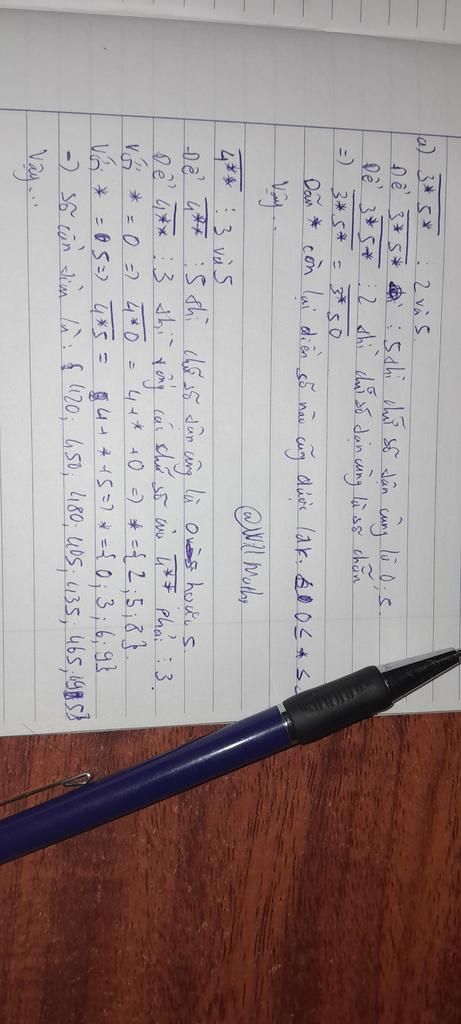 a) 3*5* ⋮ 2 và 5.
Để 3*5* ⋮ 5 thì chữ số tận cùng là 0; 5.
Để 3*5* ⋮ 2 thì chữ số tận cùng là số chẵn
=) 3*5* = 3*50
Dấu * còn lại điền số nào cũng được (đk: 0 ≤ * ≤
Vậy...
@Will Maths
4** ⋮ 3 và 5
Để 4** ⋮ 5 thì chữ số tận cùng là 0 hoặc 5
Để 4** ⋮ 3 thì tổng các chữ số của 4** phải ⋮ 3.
Với * = 0 => 4*0 = 4+*+0 => * = {2; 5; 8}.
Với * = 5 => 4*5 = 4+*+5 => * = {0; 3; 6; 9}
=) Số cần tìm là: {420; 450; 480; 405; 435; 465; 495}
Vậy...